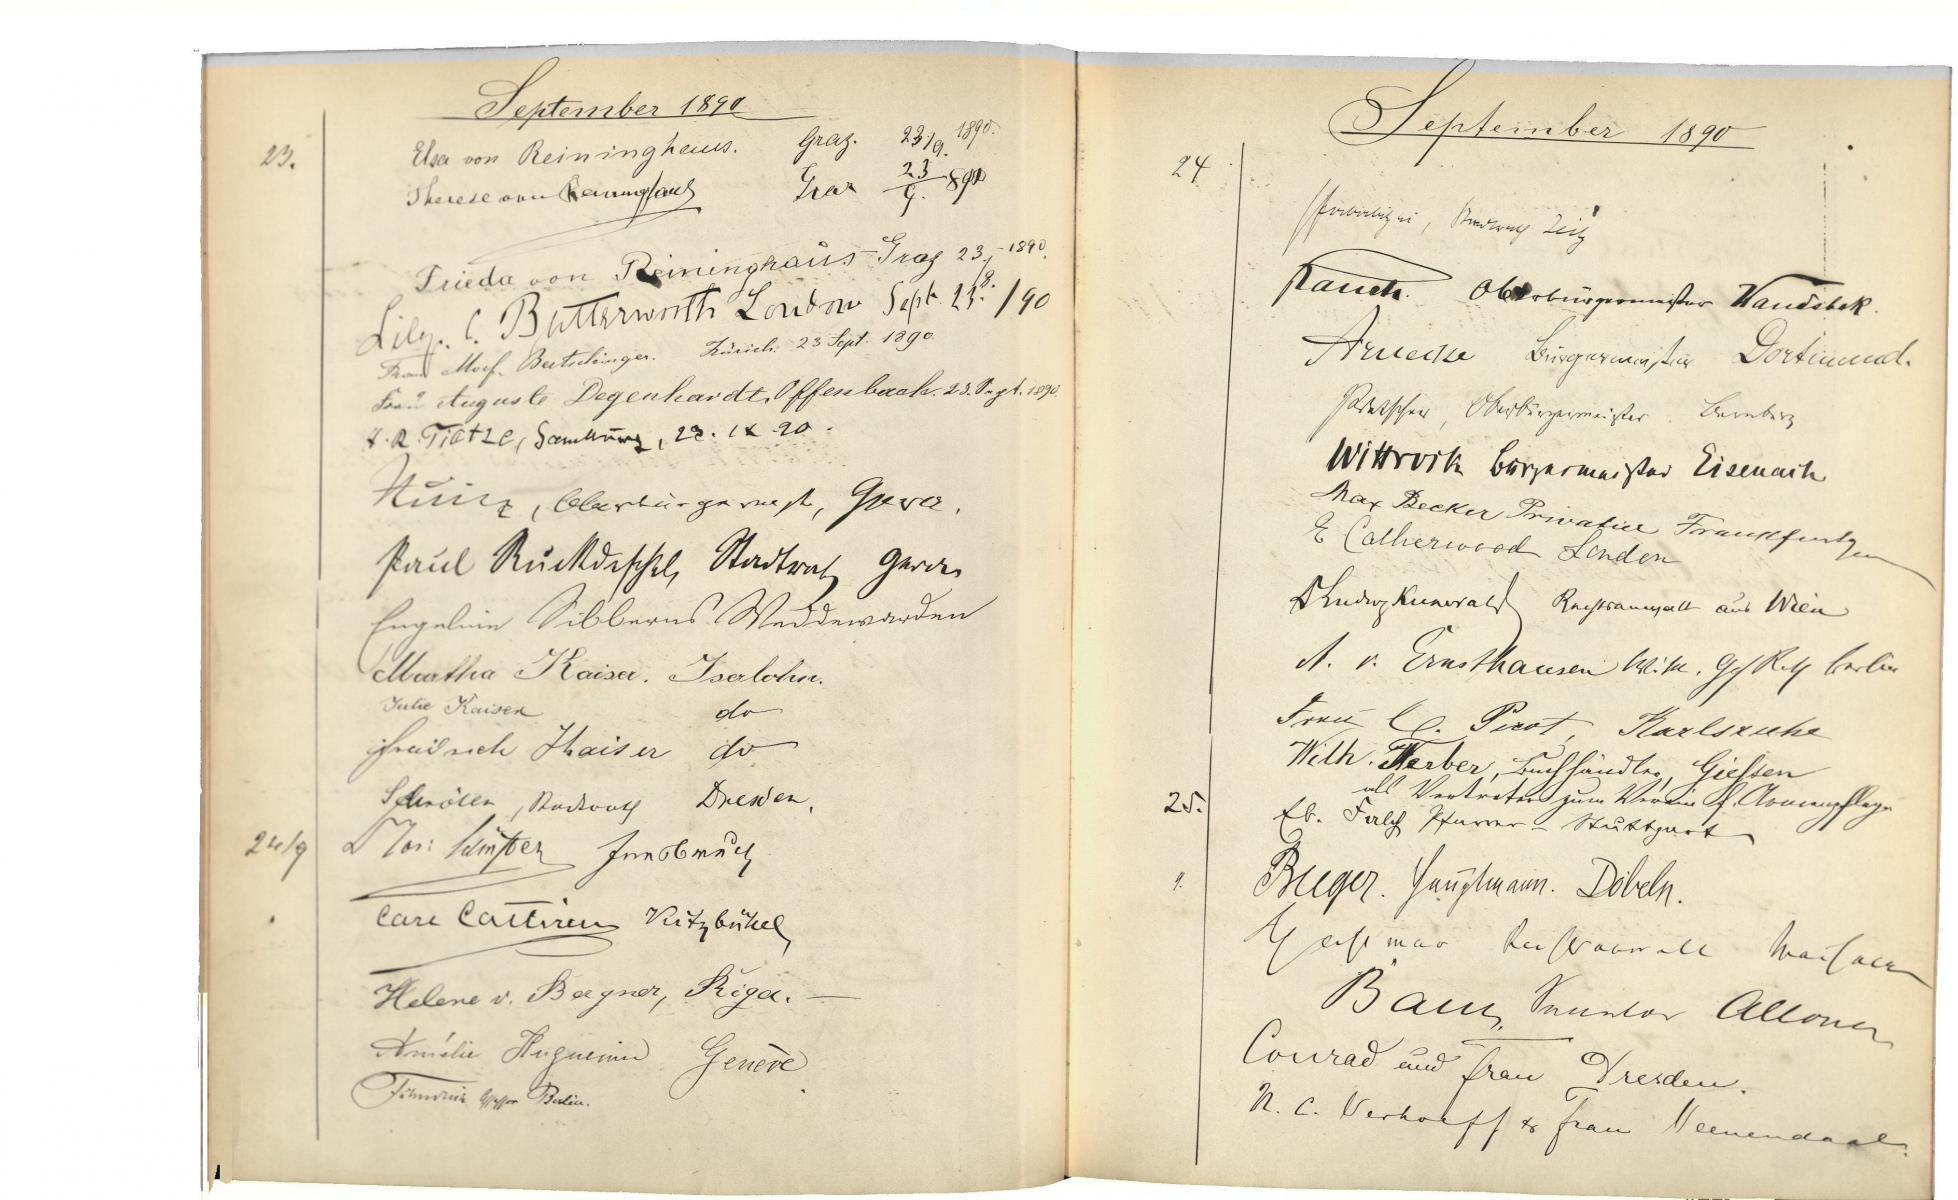 September 1890
23. Elsa von Reininghaus. Graz. 23/9. 1890.
Therese von Reininghaus Graz 23/9. 890
Frieda von Reininghaus Graz 23/9. 1890.
Lily. C. Butterworth London Sept. 23. /90
Frau Morf-Bertschinger. Zürich. 23 Sept. 1890.
Frau Auguste Degenhardt, Offenbach. 23. Sept. 1890.
Tietze, Hamburg, 23. IX 90.
Oberbürgermstr, Gera.
Paul Rückdeschel, Stadtrath Gera
Sibberns Weddewarden
Martha Kaiser. Iserlohn.
Julie Kaiser do
Friedrich Kaiser do
Stadtrath Dresden.
24/9 Jos: Innsbruck
Kitzbühel
Helene v. Bergner, Riga. —
Amélie Huguenin Genève
Berlin.
September 1890
24
Stadtrath Zeitz
Rauch. Oberbürgermeister Wandsbek.
Arnecke Bürgermeister Dortmund.
Oberbürgermeister. Bernburg
Wittrock Bürgermeister Eisenach
Max Becker Privatier Frankfurt
E Catherwood London
Dr Ludwig Kunwald Rechtsanwalt aus Wien
A. v. Ernsthausen Berlin
Frau C. Picot, Karlsruhe
Wilh. Ferber, Buchhändler, Giessen
als Vertreter zum Verein f. Armenpflege
25. Eb. Falch Pfarrer - Stuttgart
". Hauptmann. Döbeln.
Rechtsanwalt
Baur, Senator Altona
Conrad und Frau Dresden.
N. C. Verhoeff & Frau Veenendaal.